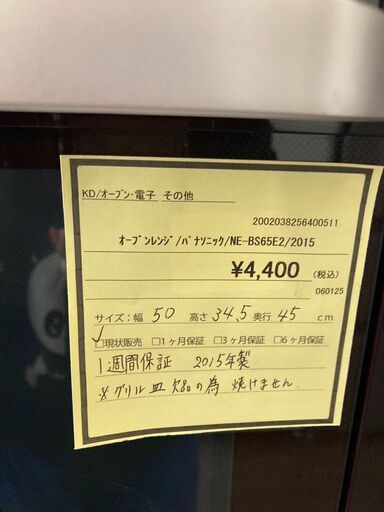 KD/オーブン・電子 その他
2002038256400511
ｵｰﾌﾞﾝﾚﾝｼﾞ/ﾊﾟﾅｿﾆｯｸ/NE-BS65E2/2015
¥4,400 (税込)
060125
サイズ:幅 50 高さ 34.5 奥行 45 cm
☑現状販売 □1ヶ月保証 □3ヶ月保証 □6ヶ月保証
1週間保証 2015年製
※グリル皿欠品の為 焼けません.